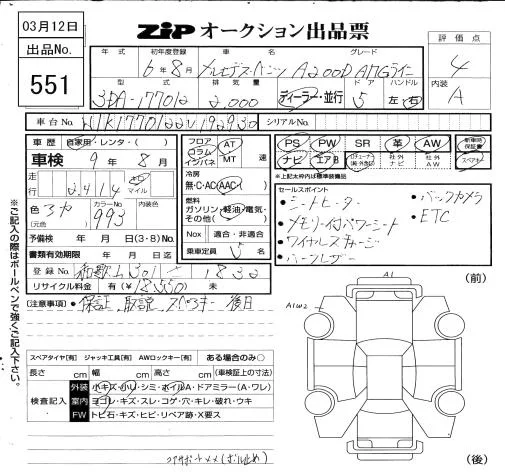 03月12日
ZIP オークション出品票
出品No.
551
年式 初年度登録 車名 グレード
6年8月 メルセデス・ベンツ A200D AMGライン
型式 排気量 ドア ハンドル
3DA-177012 2,000 ディーラー・並行 5 左・右
評価点
4
内装
A
車台No. W1K1770122V192930 シリアルNo.
車歴 自家用・レンタ・( )
車検 9年8月
走行 2,414 キロ マイル
色 (元色) カラーNo. 993 内装色
予備検 年 月 日(3・8)No.
書類有効期限 年 月 日迄
登録No. 和歌山 301 1832
リサイクル料金 有(¥18,550) 未
フロア コラム インパネ AT MT 速
冷房
無・C・AC・AAC( )
燃料
ガソリン・軽油・電気・その他( )
Nox 適合・非適合
乗車定員 5 名
PS PW SR 革 AW 新車時保証書
ナビ エアB 社外ナビ 社外AW スペアキー
※上記太わくは標準装備品
セールスポイント
・シートヒーター
・メモリー付パワーシート
・ワイヤレスチャージ
・ハーフレザー
・バックカメラ
・ETC
[注意事項]・保証、取説、スペアキー 後日
※ご記入の際はボールペンで強くご記入下さい。
スペアタイヤ[有] ジャッキ工具[有] AWロックキー[有] ある場合のみ○
長さ cm 幅 cm 高さ cm (車検証上の寸法)
検査記入
外装 小キズ・小U・シミ・ホイルA・ドアミラー(A・ワレ)
室内 ヨゴレ・キズ・スレ・コゲ・穴・キレ・破れ・ウキ
FW トビ石・キズ・ヒビ・リペア跡・X要ス
A1
A1W2
(前)
(後)